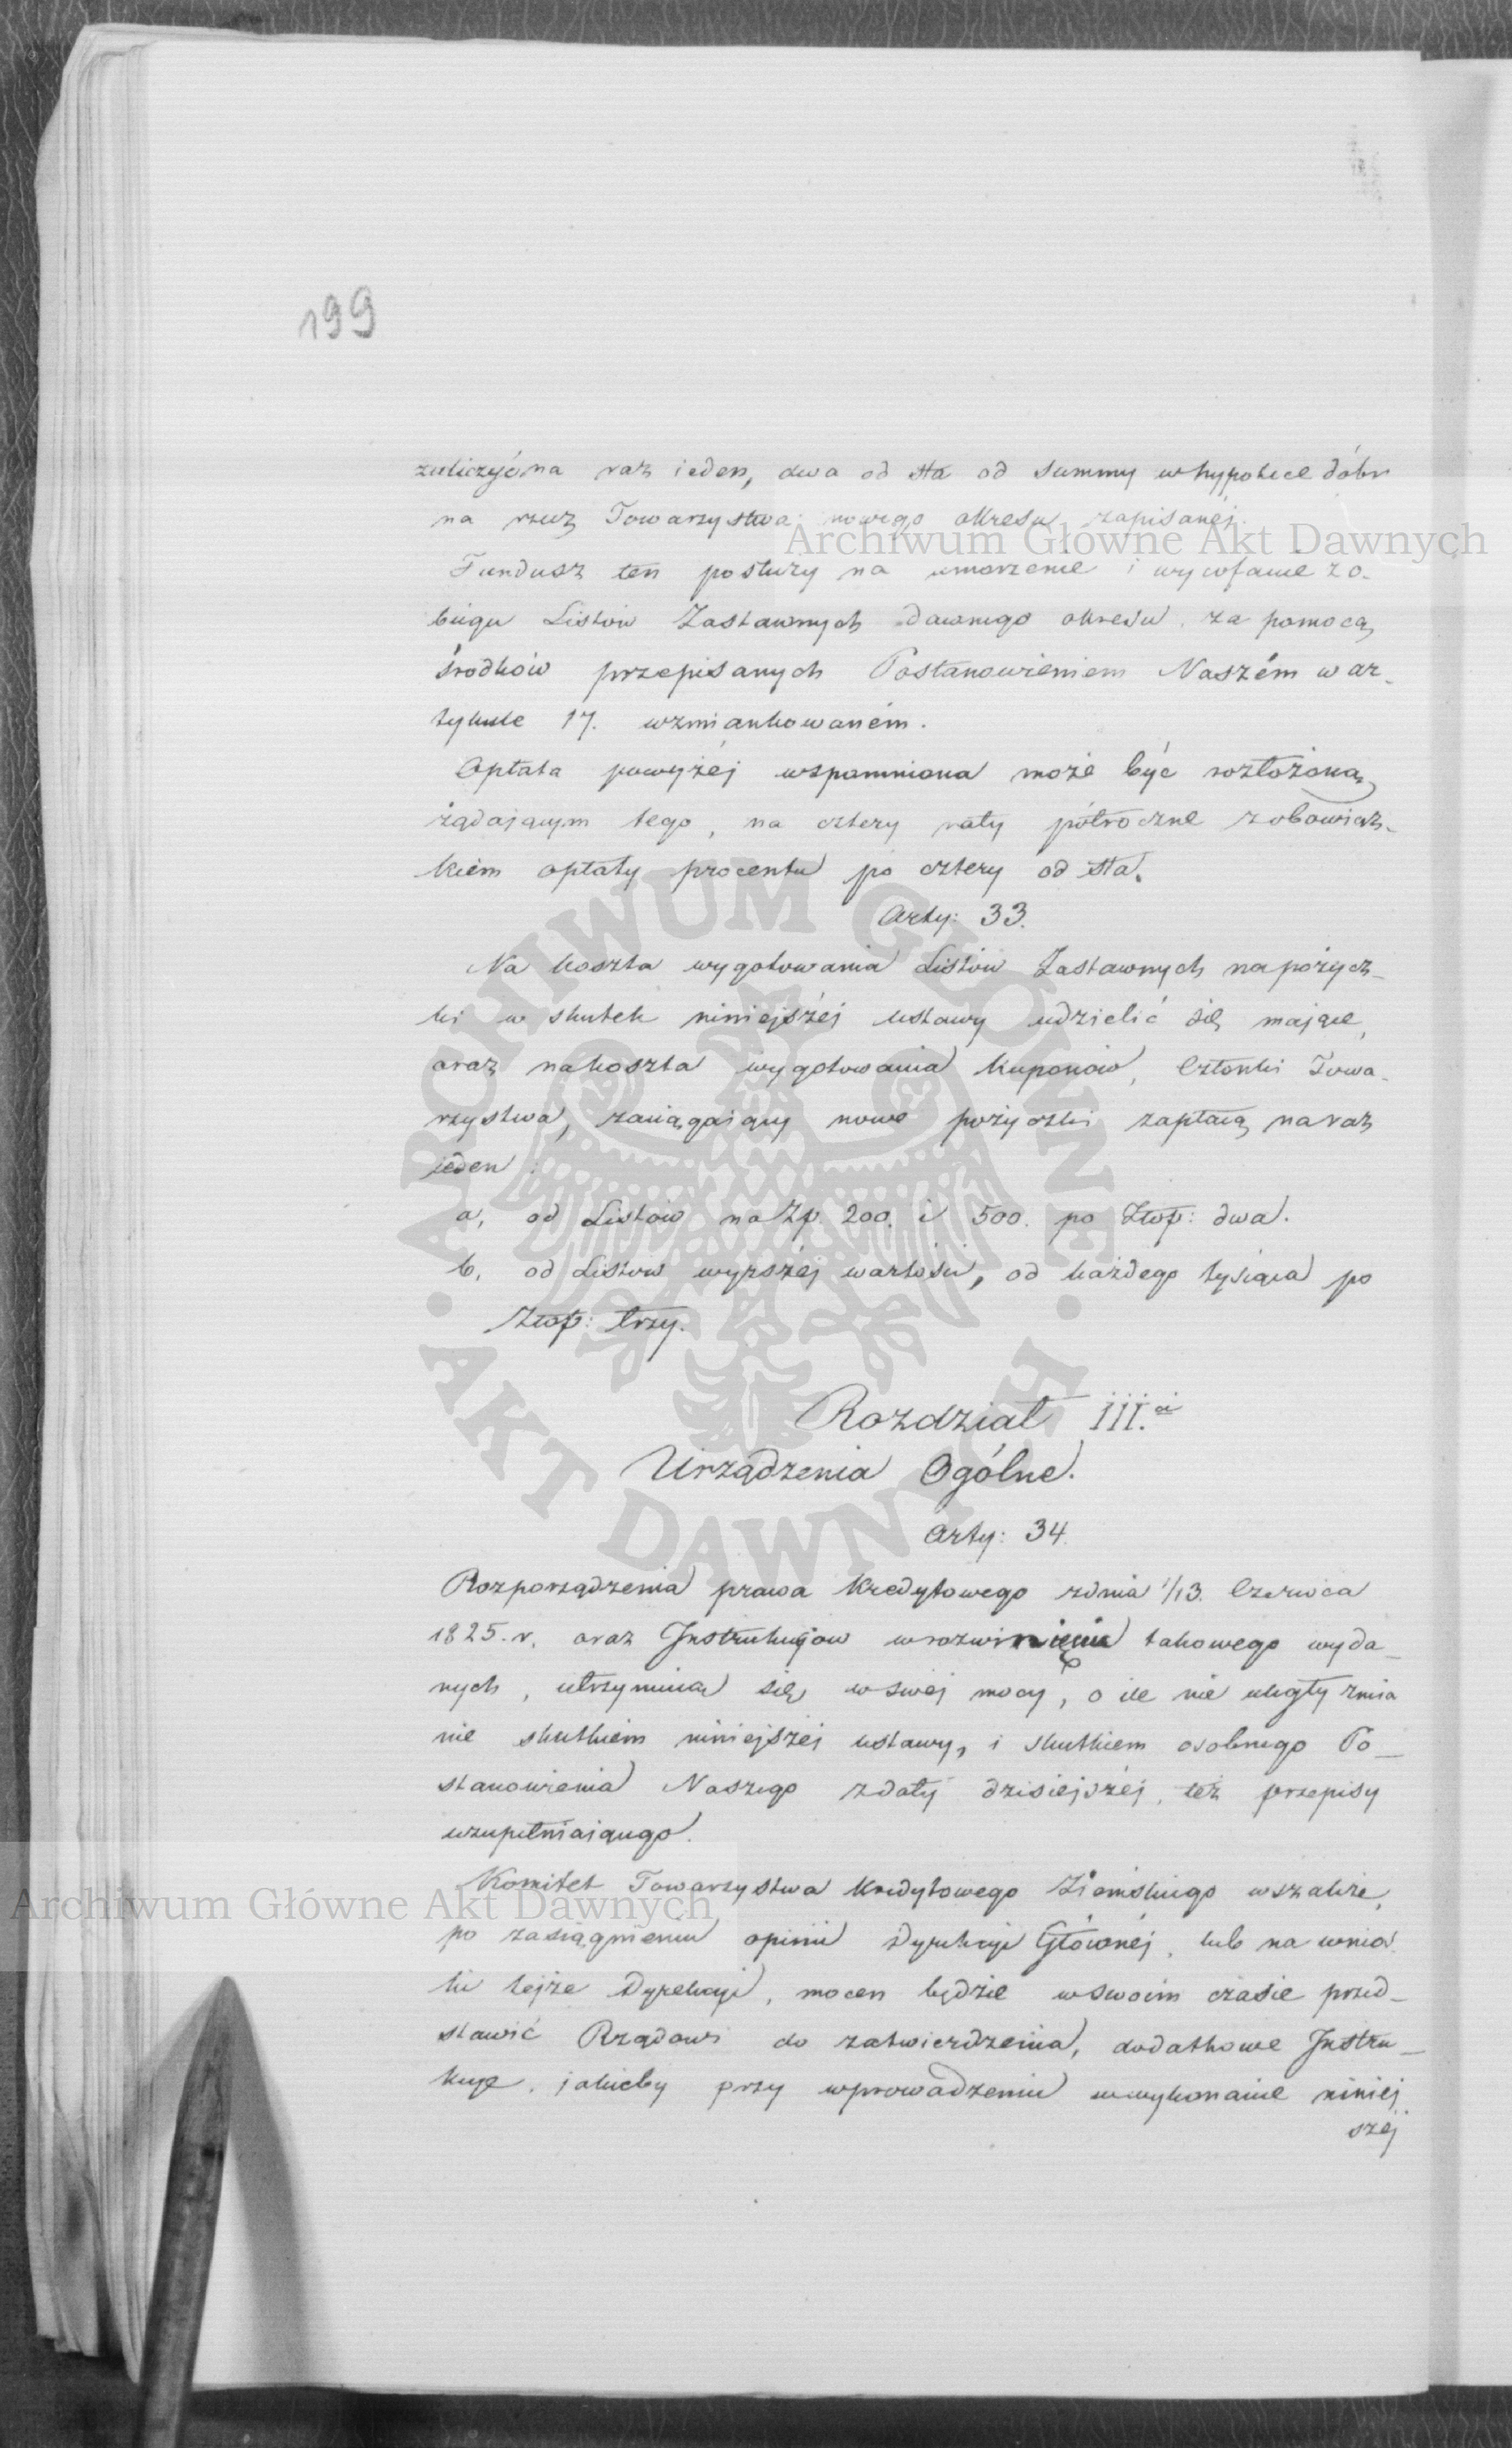 199
zaliczyć na raz ieden, dwa od sta od summy w hypotece dóbr
na rzecz Towarzystwa nowego okresu zapisanéj.
Archiwum Główne Akt Dawnych
Fundusz ten posłuży na umorzenie i wycofanie z o-
biegu Listów Zastawnych dawnego okresu, za pomocą
środków przepisanych Postanowieniem Naszém w ar-
tykule 17. wzmiankowaném.
Opłata powyżéj wspomniona może być rozłożoną
żądającym tego, na cztery raty półroczne z obowiąz-
kiem opłaty procentu po cztery od sta.
Arty: 33.
Na koszta wygotowania Listów Zastawnych na pożycz-
ki w skutek niniejszéj ustawy udzielić się mające,
oraz na koszta wygotowania kuponów, Członki Towa-
rzystwa, zaciągaiący nowe pożyczki zapłacą na raz
jeden:
a, od Listów na Zp. 200. i 500. po Złop: dwa.
b, od Listów wyższéj wartości, od każdego tysiąca po
Złop: trzy.
ARCHIWUM GŁÓWNE
AKT DAWNYCH
Rozdział III.ci
Urządzenia Ogólne.
Arty: 34.
Rozporządzenia prawa Kredytowego z dnia 1/13. Czerwca
1825. r. oraz Instrukcjow w rozwinięciu takowego wyda-
nych, utrzymują się w swéj mocy, o ile nie uległy zmia
nie skutkiem niniejszéj ustawy, i skutkiem osobnego Po-
stanowienia Naszego z daty dzisiejszéj, też przepisy
uzupełniaiącego.
Komitet Towarzystwa Kredytowego Ziemskiego wszakże,
Archiwum Główne Akt Dawnych
po zasiągnieniu opinii Dyrekcyi Głównéj, lub na wnios
ki tejże Dyrekcyi, mocen będzie w swoim czasie przed-
stawić Rządowi do zatwierdzenia, dodatkowe Instru-
kcye, jakieby przy wprowadzeniu w wykonanie niniej
széj